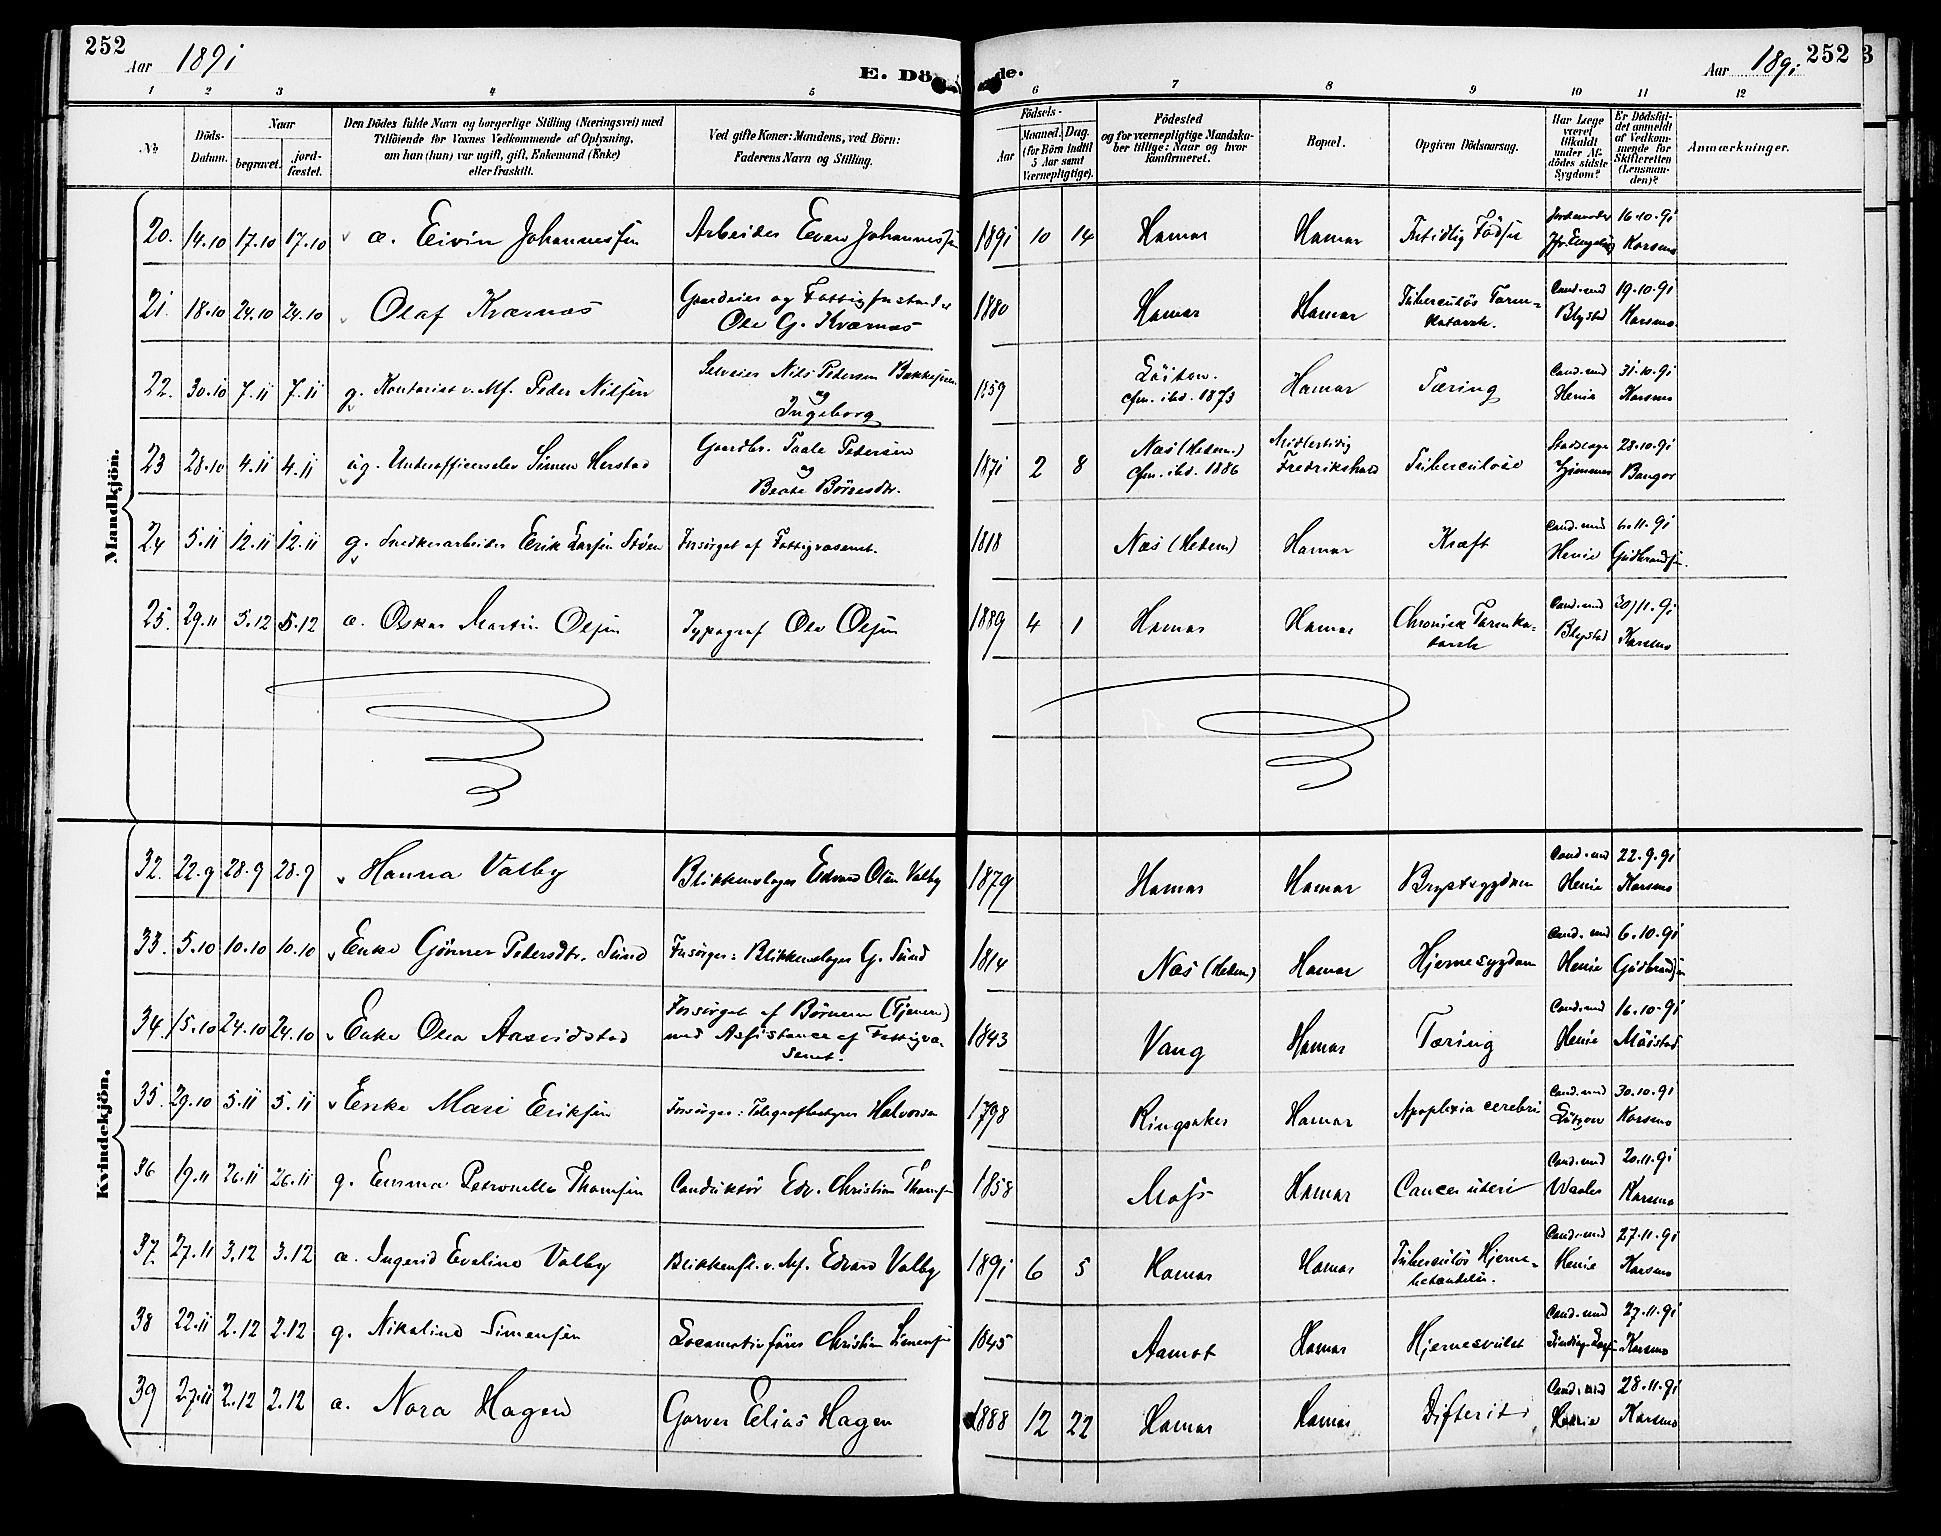 252
Aar 1891
E. Dö de.
Aar 1891 252 3
1 2 3 4 5 6 7 8 9 10 11 12
No
Döds-
Datum.
Naar
begravet. jord-
fæstet.
Den Dödes fulde Navn og borgerlige Stilling (Næringsvei) med
Tilföiende for Voxnes Vedkommende af Oplysning,
om han (hun) var ugift, gift, Enkemand (Enke)
eller fraskilt.
Ved gifte Koner: Mandens, ved Börn:
Faderens Navn og Stilling.
Födsels-
Aar
Maaned. Dag.
(for Börn indtil
5 Aar samt
Værnepligtige).
Födested
og for værnepligtige Mandska-
ber tillige: Naar og hvor
konfirmeret.
Bopæl.
Opgiven Dödsaarsag.
Har Læge
været
tilkaldt
under Af-
dödes sidste
Sygdom?
Er Dödsfal-
det anmeldt
af Vedkom-
mende for
Skifteretten
(Lensman-
den)?
Anmærkninger.
Mandkjön.
20. 14.10 17.10 17.10 a. Eivin Johannessen Arbeider Even Johannessen 1891 10 14 Hamar Hamar Frtidlig Födsel Jordemoder 16.10.91 Korsmo
21. 18.10 24.10 24.10 Olaf Kværnæs Gaardeier og Fattigforstander
Ole G. Kværnæs 1880 Hamar Hamar Tuberculös Tarm-
katarrh. Cand. med Blystad 19.10.91 Korsmo
22. 30.10 7.11 7.11 g. Kontorist v. Mf. Peder Nilsen Selveier Nils Pedersen
og
Ingeborg 1859 Löiten.
Cfm. ibd. 1873 Hamar Tæring Cand. med Henie 31.10.91 Korsmo
23 28.10 4.11 4.11 ug. Underofficerselev Simen Herstad Gaardbr. Taale Pedersen
og
Beate Börresdtr. 1871 2 8 Næs (Hedem.)
Cfm. ibd. 1886 Midlertidig
Fredrikshald Tuberculose Stadslæge 28.10.91 Bangor
24 5.11 12.11 12.11 g. Snedkerarbeider Erik Larsen Stöen Forsörget af Fattigvæsenet. 1818 Næs (Hedem) Hamar Kræft Cand. med Henie 6.11.91 Gudbrandsen.
25. 29.11 5.12 5.12 a. Oskar Martin Olsen Typograf Ole Olsen 1889 4 1 Hamar Hamar Chronisk Tarmka-
tarrh Cand. med Blystad 30/11.91 Korsmo
Kvindekjön.
32. 22.9 28.9 28.9 Hanna Valby Blikkenslager Edvard Olsen Valby 1879 Hamar Hamar Brystsygdom Cand. med Henie 22.9.91 Korsmo
33. 5.10 10.10 10.10 Enke Gönner Pedersdtr. Sund Forsörger: Blikkenslager G. Sund 1814 Næs (Hedem) Hamar Hjernesygdom Cand. med Henie 6.10.91 Gudbrandsen
34. 15.10 24.10 24.10 Enke Olea Aarvidstad Forsörget af Börnene (Tjenere)
med Assistance af Fattigvæ-
senet. 1843 Vang Hamar Tæring Cand. med Henie 16.10.91 Möistad
35. 29.10 5.11 5.11 Enke Mari Eriksen Forsörger: Telegrafbestyrer Halvorsen 1798 Ringsaker Hamar Apoplexia cerebri Cand. med Lützow 30.10.91 Korsmo
36 19.11 26.11 26.11 g. Emma Petronella Thomsen Conduktör Edv. Christian Thomsen 1858 Moss Hamar Cancer uteri Cand. med Waaler 20.11.91 Korsmo
37. 27.11 3.12 3.12 a. Ingerid Eveline Valby Blikkensl. v. Mf. Edvard Valby 1891 6 5 Hamar Hamar Tuberculös Hjerne-
betændelse. Cand. med Henie 27.11.91 Korsmo
38 22.11 2.12 2.12 g. Nikoline Simensen Locomotivförer Christian Simensen 1845 Aamot Hamar Hjernesvulst Cand. med 27.11.91 Korsmo
39 27.11 2.12 2.12 a. Nora Hagen Garver Elias Hagen 1888 12 22 Hamar Hamar Difterit Cand. med Henie 28.11.91 Korsmo